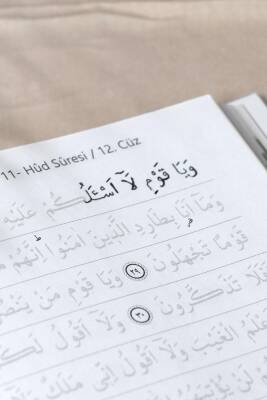 11- Hûd Sûresi / 12. Cüz
وَيَا قَوْمِ لَٓا اَسْـَٔلُكُمْ عَلَيْهِ
وَمَٓا اَنَا۬ بِطَارِدِ الَّذ۪ينَ اٰمَنُواۜ اِنَّهُمْ
قَوْمًا تَجْهَلُونَ ﴿٢٩﴾ وَيَا قَوْمِ مَنْ يَنْصُ
تَذَكَّرُونَ ﴿٣٠﴾ وَلَٓا اَقُولُ لَكُ
الْغَيْبَ وَلَٓا اَقُولُ اِنّ۪ي مَلَكٌ
لَنْ